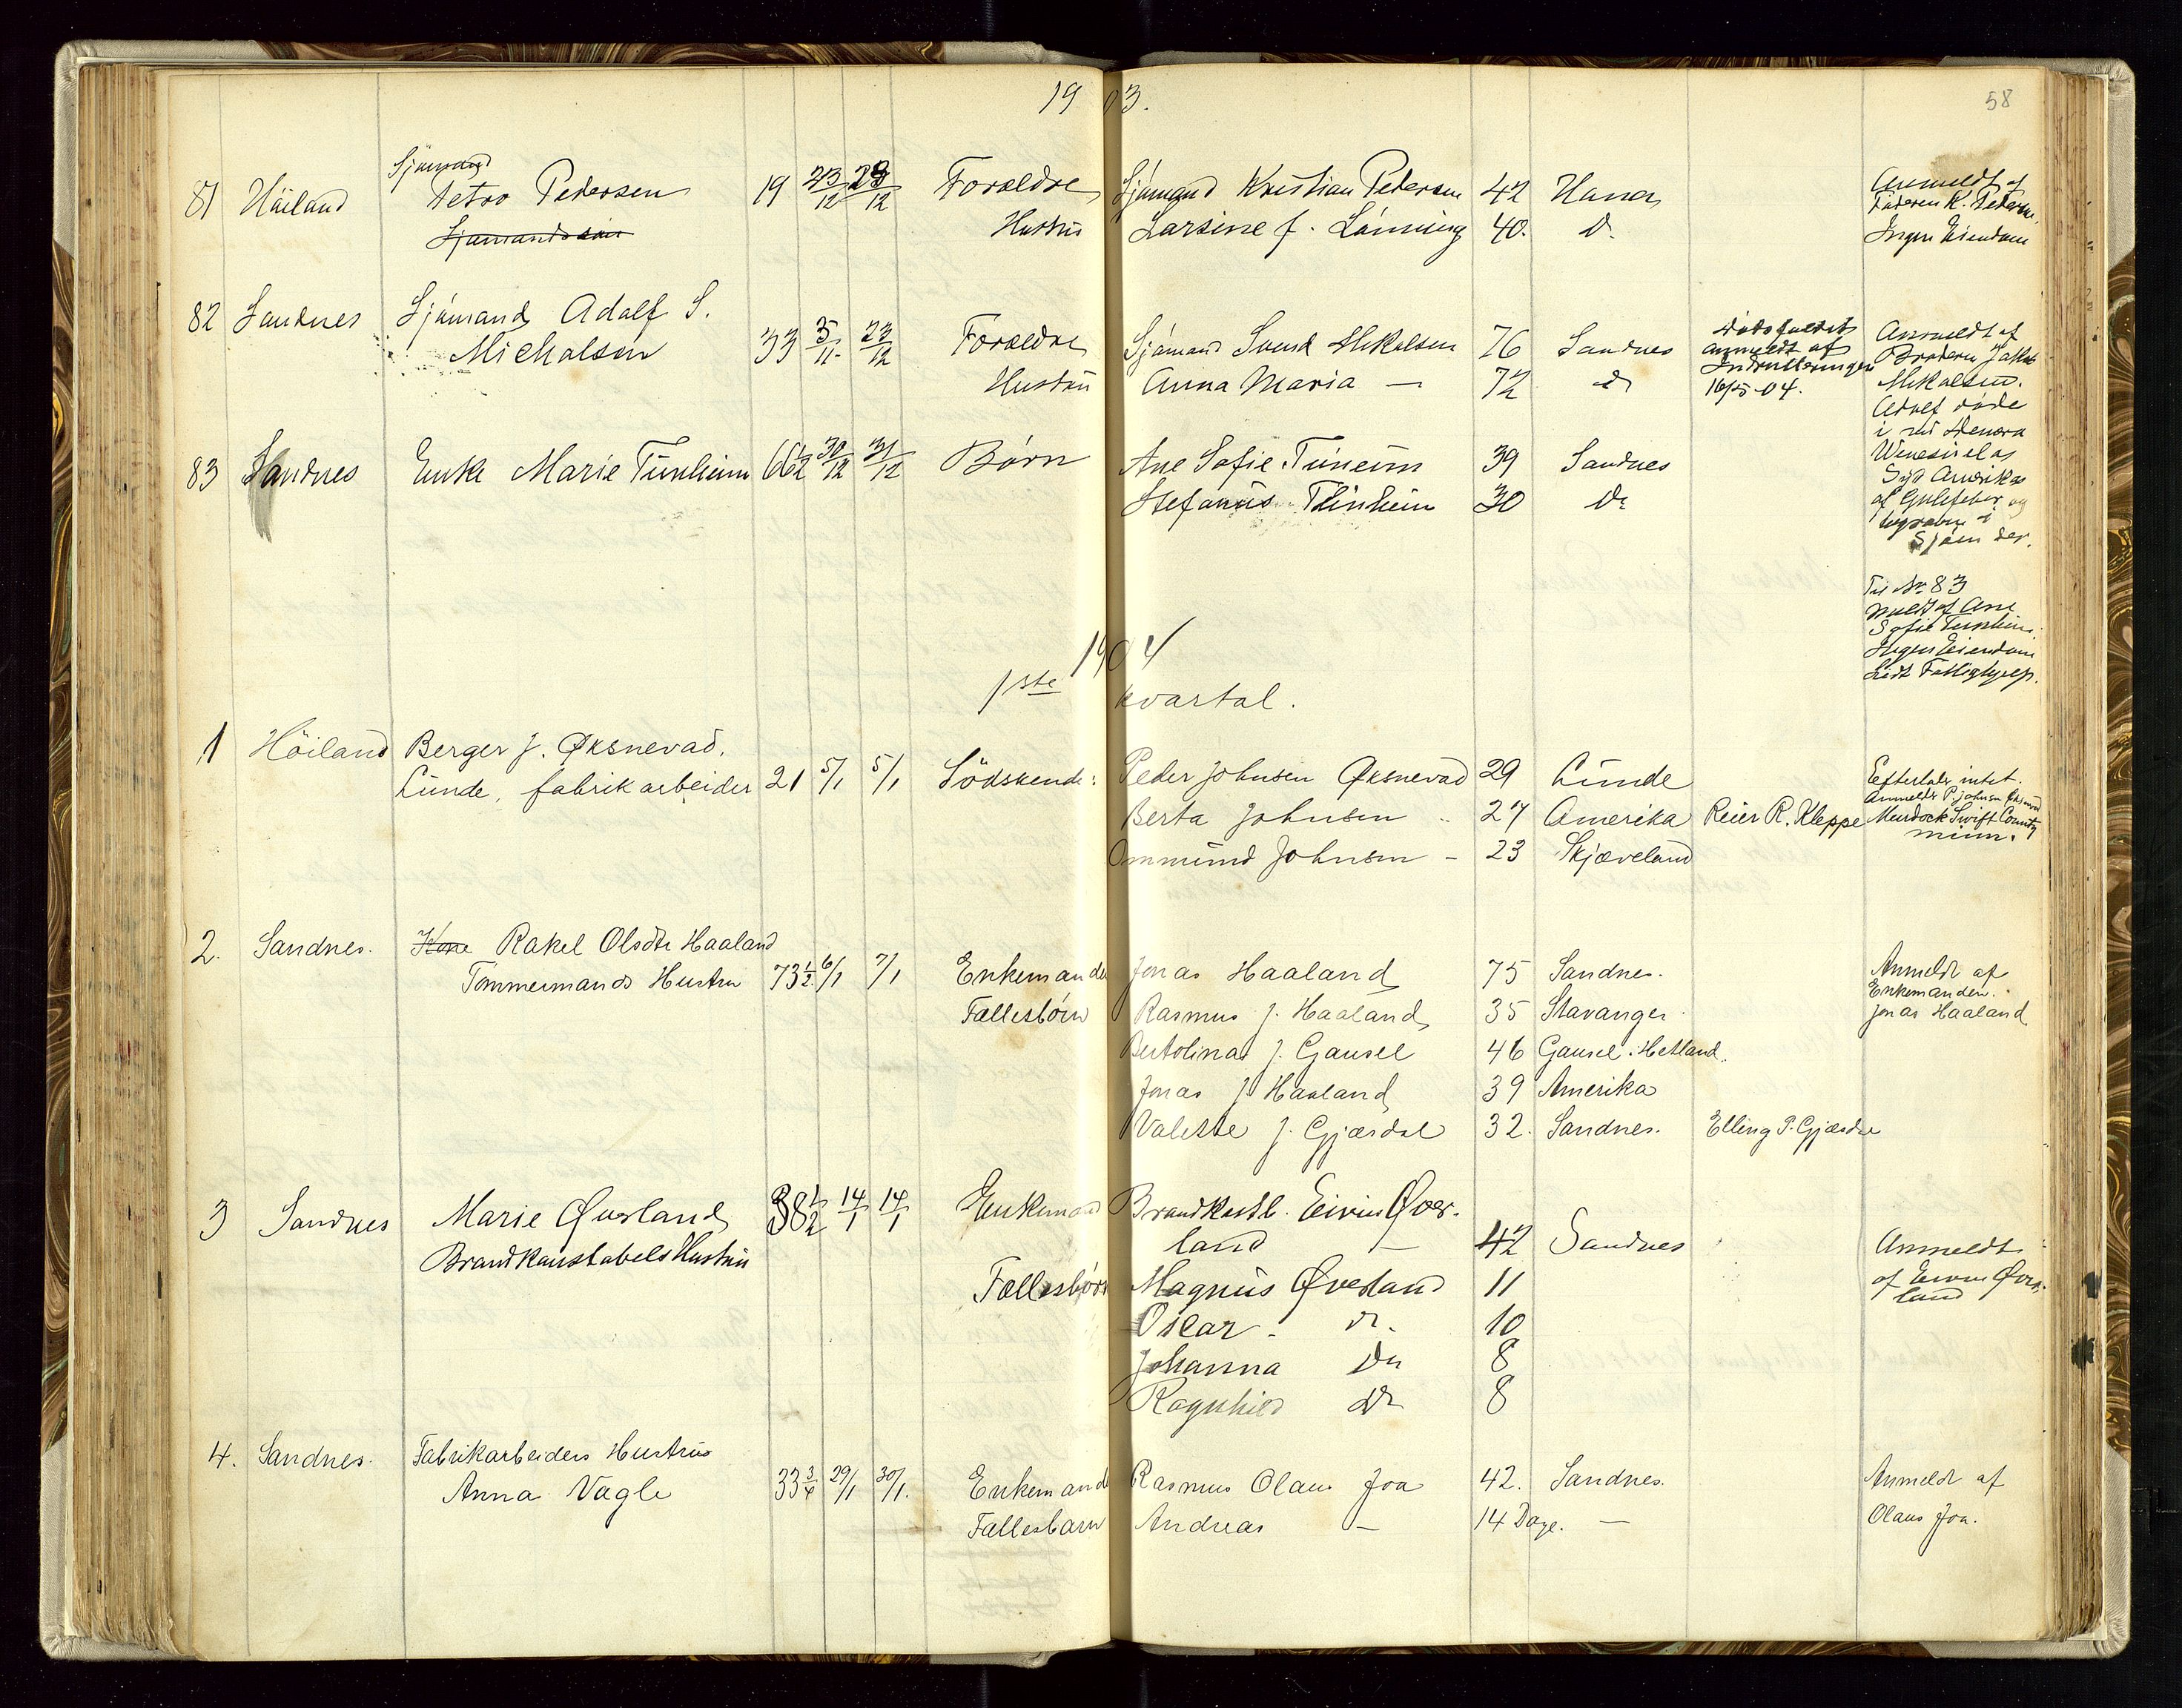 1903.
58
Sjømand
81 Höiland Petro Pedersen 19 23/12 28/12 Forældre Sjømand Kristian Pedersen 42 Hana Anmeldt af
Sjømandssøn Hustru Larsine f. Lönning 40. Do. Faderen K. Pedersen.
Ingen Eiendom
82 Sandnes Sjömand Adolf S.
Michalsen 33 5/11 23/12 Forældre Sjømand Svend Mikalsen 76 Sandnes Dødsfaldet Anmeldt af
anmeldt af Broderen
Hustru Anna Maria — 72 do Indrulleringen Mikalsen.
16/5-04. Adolf døde
83 Sandnes Enke Marie Tunheim 66 1/2 30/12 31/12 Børn Ane Sofie Tuneim 39 Sandnes
Stefanus Tunheim 30 Do
Syd Amerika
af Gulefeber og
i
Sjøen der.
Til No 83
meldt af Ane
Sofie Tunheim.
Ingen Eiendom
Lidt Fattighjelp.
1904
1ste kvartal.
1 Höiland Berger J. Øksnevad.
Lunde, fabrikarbeider 21 5/1 5/1 Södskende: Peder Johnsen Øksnevad 29 Lunde Efterlader intet.
Anmeldt P. Johnsen Øksnevad
Berta Johnsen " 27 Amerika Reier R. Kleppe Murdock Swift County
Minn.
Ommund Johnsen - 23 Skjæveland
2. Sandnes. Kone Rakel Olsdtr Haaland
Tømmermands Hustru 73 1/2 6/1 7/1 Enkemanden Jonas Haaland 75 Sandnes. Anmeldt af
Enkemanden.
Fællesbörn Rasmus J. Haaland 35 Stavanger Jonas Haaland
Bertolina J. Gausel 46 Gausel i Hetland.
Jonas J. Haaland 39 Amerika
Valette J. Gjæsdal 32. Sandnes. Elling P. Gjæsdal
3 Sandnes Marie Øverland 38 1/2 14/1 14/1 Enkemand Brandkostbl. Eivin Øver-
Brandkonstabels Hustru land — 42 Sandnes Anmeldt
Fællesbørn Magnus Øverland 11 af Eivin Øver-
land
Oscar - do. 10
Johanna do 8
Ragnhild do 8
4. Sandnes. Fabrikarbeiders Hustru
Anna Vagle 33 3/4 29/1 30/1. Enkemand Rasmus Olaus Joa 42. Sandnes. Anmeldt af
Fællesbarn Andreas — 14 Dage. — Olaus Joa.